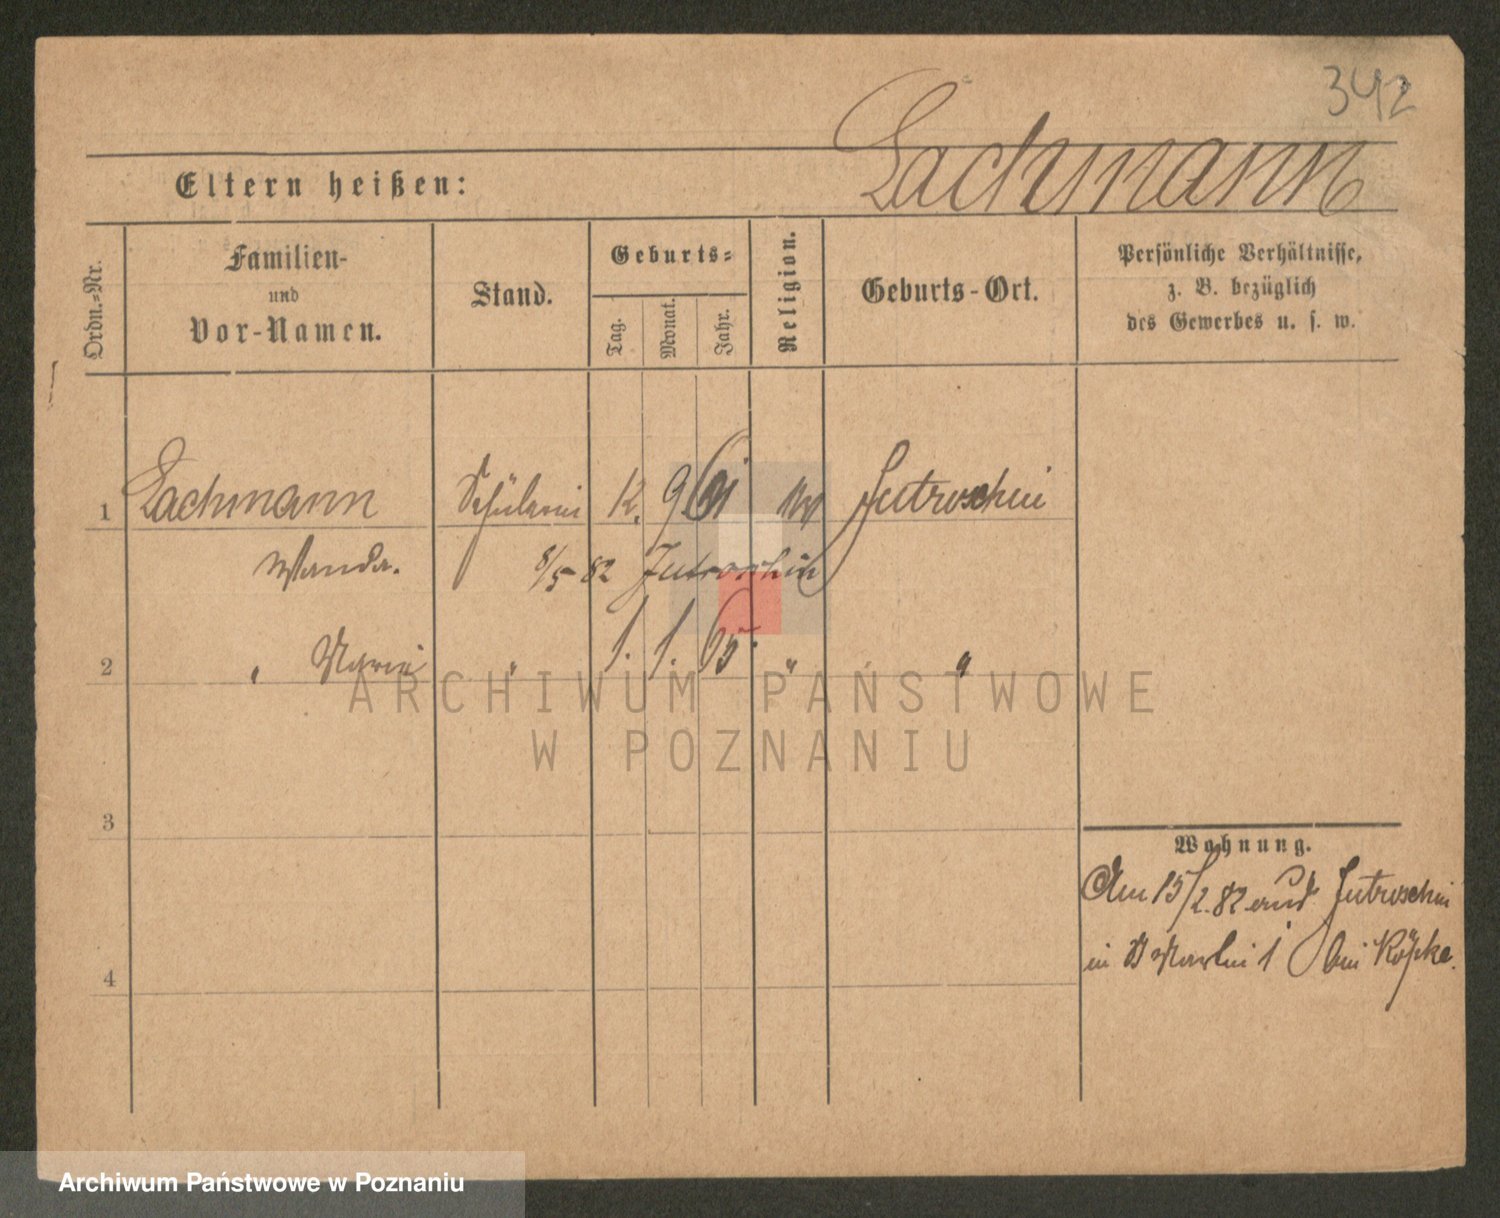 342
Lachmann
Eltern heißen:
Ordn.=Nr.
Familien-
und
Vor-Namen.
Stand.
Geburts=
Tag.
Monat.
Jahr.
Religion.
Geburts-Ort.
Persönliche Verhältnisse,
z. B. bezüglich
des Gewerbes u. s. w.
1 Lachmann Schülerin 12. 9 61 Jutroschin
Wanda. 8/5 82 Jutroschin
2 " Marie " 1. 1. 65. " "
3
4
Wohnung.
Am 15/2. 82 aus Jutroschin
in St Martin 1 bei Köpke.
ARCHIWUM PAŃSTWOWE
W POZNANIU
Archiwum Państwowe w Poznaniu